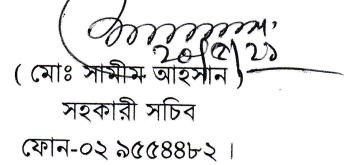 ২০/৫/২১
( মোঃ সামীম আহসান )
সহকারী সচিব
ফোন-০২ ৯৫৫৪৪৮২ ।